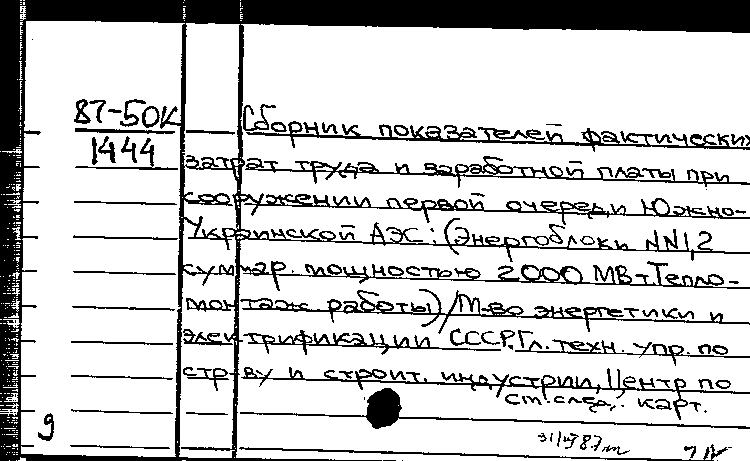 87-50К
1444
Сборник показателей фактических
затрат труда и заработной платы при
сооружении первой очереди Южно-
Украинской АЭС: (Энергоблоки NN1,2
суммар. мощностью 2000 МВт. Тепло-
монтаж. работы) / М-во энергетики и
электрификации СССР. Гл. техн. упр. по
стр-ву и строит. индустрии, Центр по
см. след. карт.
9